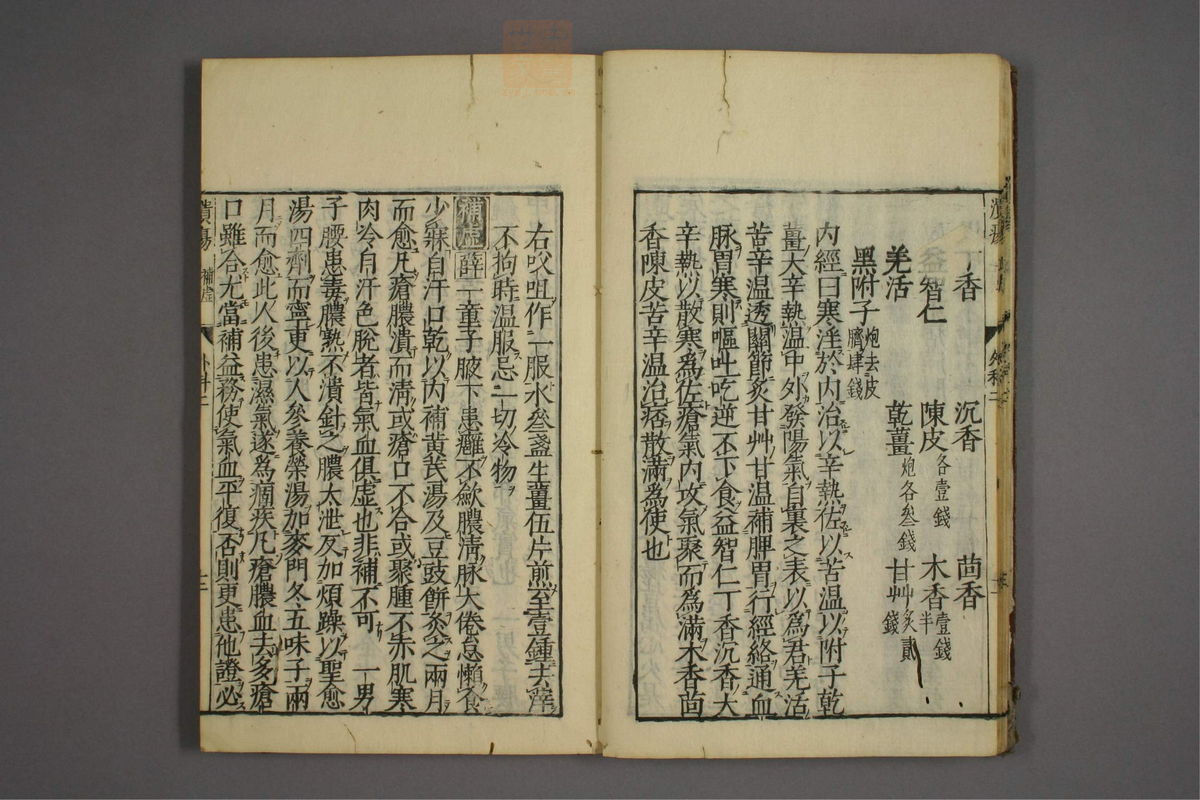 丁香 沉香 茴香
智仁 陳皮各壹錢 木香壹錢半
羌活 乾薑炮各叄錢 甘艸炙貳錢
黑附子炮去皮臍肆錢
內經曰寒淫於內治以辛熱佐以苦溫以附子乾
薑大辛熱溫中外發陽氣自裏之表以為君羌活
苦辛溫透關節炙甘艸甘溫補脾胃行經絡通血
脉胃寒則嘔吐吃逆不下食益智仁丁香沉香大
辛熱以散寒為佐瘡氣內攻氣聚而為滿木香茴
香陳皮苦辛溫治痞散滿為使也
右㕮咀作一服水叄盞生薑伍片煎至壹鍾去滓
不拘時溫服忌一切冷物
補虛 薛 一童子腋下患癰不歛膿清脉大倦怠懶食
少寐自汗口乾以內補黃芪湯及豆豉餅灸之兩月
而愈凡瘡膿潰而清或瘡口不合或聚腫不赤肌寒
肉冷自汗色脫者皆氣血俱虛也非補不可 一男
子腰患毒膿熟不潰針之膿大泄反加煩躁以聖愈
湯四劑而寧更以人參養榮湯加麥門冬五味子兩
月而愈此人後患濕氣遂為痼疾凡瘡膿血去多瘡
口雖合尤當補益務使氣血平復否則更患他證必
潰瘍 補虛 外科二